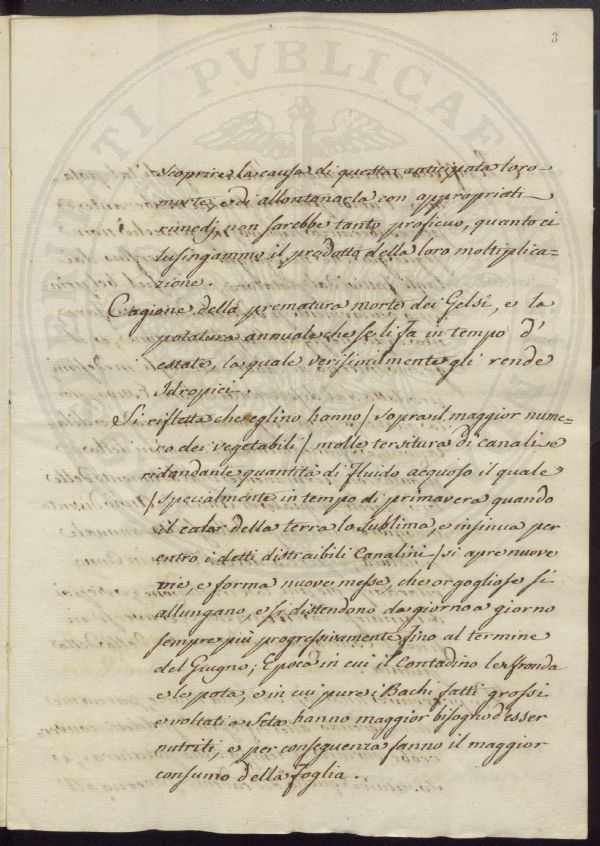 3
scoprire la causa di questa anticipata loro
morte, e di allontanarla con appropriati
rimedj, non sarebbe tanto proficuo, quanto ci
lusingammo il prodotto della loro moltiplica=
zione.
Cagione della prematura morte dei Gelsi, e la
potatura annuale che se li fa in tempo d'
estate, la quale verisimilmente gli rende
Idropici.
Si rifletta che eglino hanno / sopra il maggior nume=
ro dei vegetabili / molle tersitura di canali, e
ridondante quantità di fluido acquoso il quale
/ specialmente in tempo di primavera quando
il calor della terra lo sublima, e insinua per
entro i detti distraibili Canalini / si apre nuove
vie, e forma nuove messe, che orgogliose si
allungano, e si distendono da giorno a giorno
sempre più progressivamente fino al termine
del Giugno; Epoca in cui il Contadino le sfronda
e le pota, e in cui pure i Bachi fatti grossi
e voltati a Seta hanno maggior bisogno d'esser
nutriti, e per conseguenza fanno il maggior
consumo della foglia.
PVBLICAE